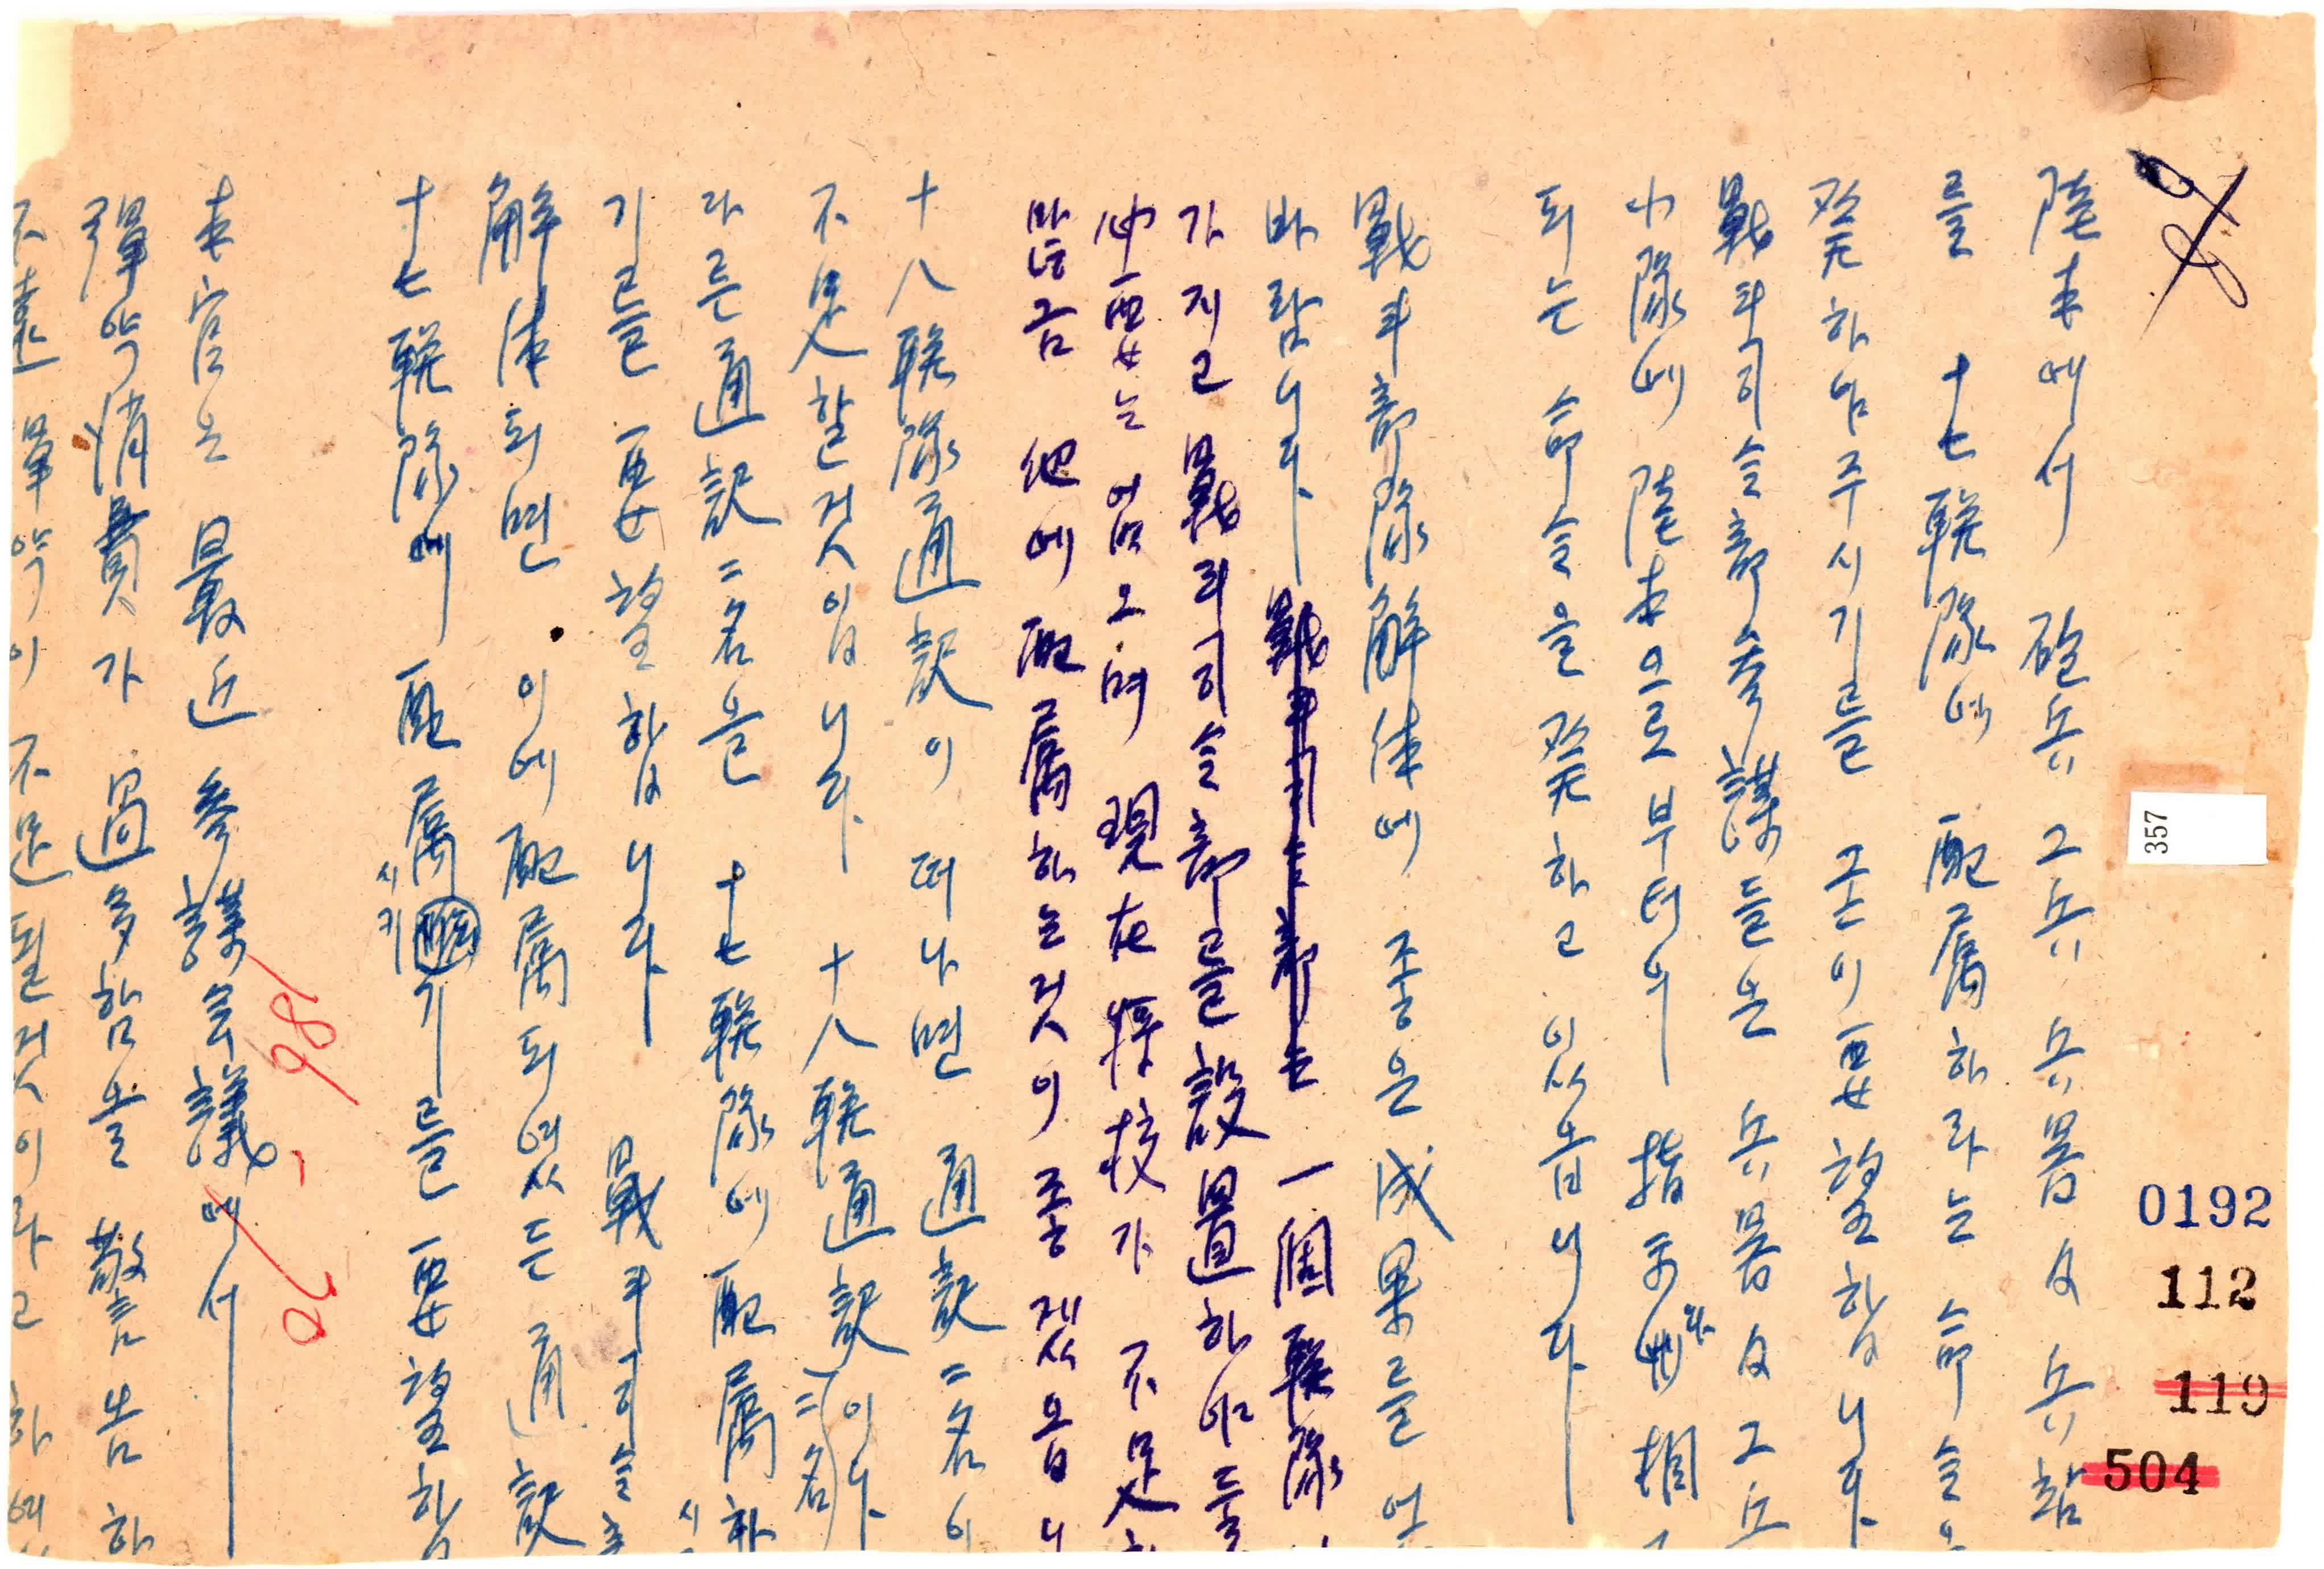 陸本에서 砲兵 工兵 兵器 及 兵站
를 十七聯隊에 配属하라는 命令을
発하여 주시기를 곤이 要望합니다
戰斗司令部 參謀들은 兵器 及 工兵
小隊에 陸本으로부터의 指示와 相
되는 命令을 発하고 있습니다
戰斗部隊 解体에 좋은 成果를 얻
바랍니다 一個 聯隊
가지고 戰斗司令部를 設置하야 둘
必要는 업으며 現在 将校가 不足
만큼 他에 配属하는것이 좋겠읍니
十八聯隊 通訳이 떠나면 通訳 二名이
不足할것입니다 十八聯隊 通訳이나
다른 通訳 二名을 十七聯隊에 配属하
기를 要望합니다 戰斗司令
解体되면 이에 配属되였든 通訳
十七聯隊에 配属시키기를 要望합
本官은 最近 參謀会議에서
彈約消費가 過多함을 警告하
彈約이 不足될것이라고 하였
0192
112
119
504
357